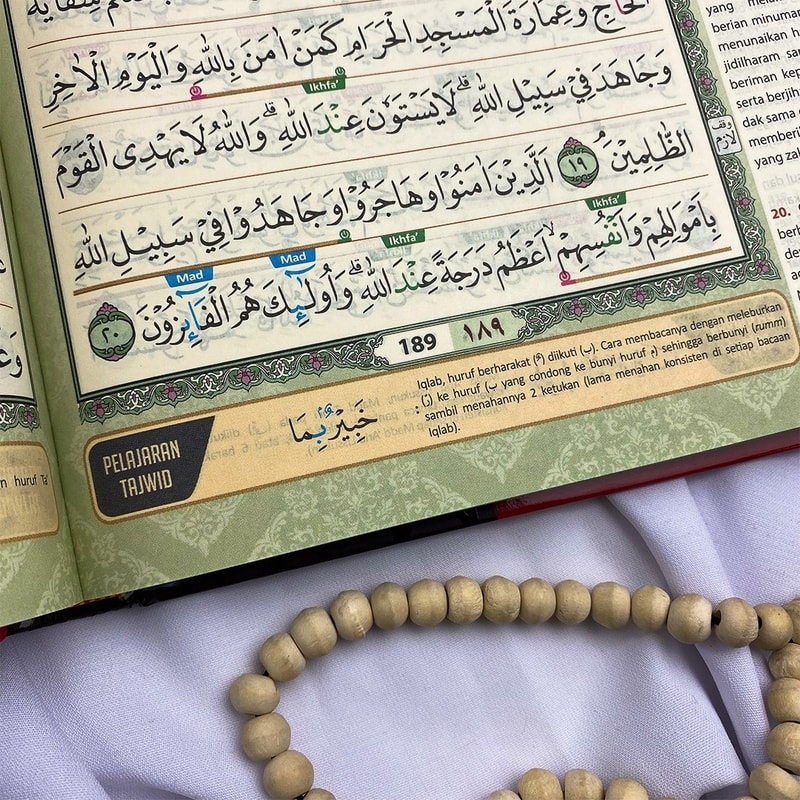 الْحَاۤجِّ وَعِمَارَةَ الْمَسْجِدِ الْحَرَامِ كَمَنْ اٰمَنَ بِاللّٰهِ وَالْيَوْمِ الْاٰخِرِ
Ikhfa'
وَجَاهَدَ فِيْ سَبِيْلِ اللّٰهِ ۗ لَا يَسْتَوٗنَ عِنْدَ اللّٰهِ ۗ وَاللّٰهُ لَا يَهْدِى الْقَوْمَ
الظّٰلِمِيْنَۘ ١٩ اَلَّذِيْنَ اٰمَنُوْا وَهَاجَرُوْا وَجَاهَدُوْا فِيْ سَبِيْلِ اللّٰهِ
Ikhfa' Ikhfa' Mad Mad
بِاَمْوَالِهِمْ وَاَنْفُسِهِمْۙ اَعْظَمُ دَرَجَةً عِنْدَ اللّٰهِ ۗ وَاُولٰۤىِٕكَ هُمُ الْفَاۤىِٕزُوْنَ ٢٠
وقف
لازم
189 ١٨٩
PELAJARAN
TAJWID
خَبِيْرٌۢ بِمَا :
Iqlab, huruf berharakat (ـٌ) diikuti (ب). Cara membacanya dengan meleburkan
(ـٌ) ke huruf (ب yang condong ke bunyi huruf م) sehingga berbunyi (rumm)
sambil menahannya 2 ketukan (lama menahan konsisten di setiap bacaan
Iqlab).
yang
berian minuman
menunaikan h
jidilharam sa
beriman kep
serta berjih
dak sama
memberi
yang zal
20.
berh
de
n huruf Ta'